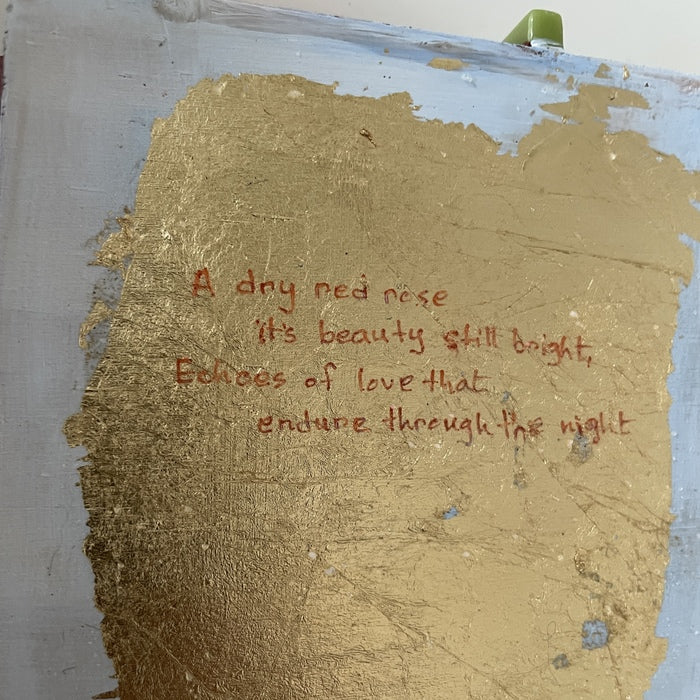 A dry red rose
it's beauty still bright,
Echoes of love that
endure through the night